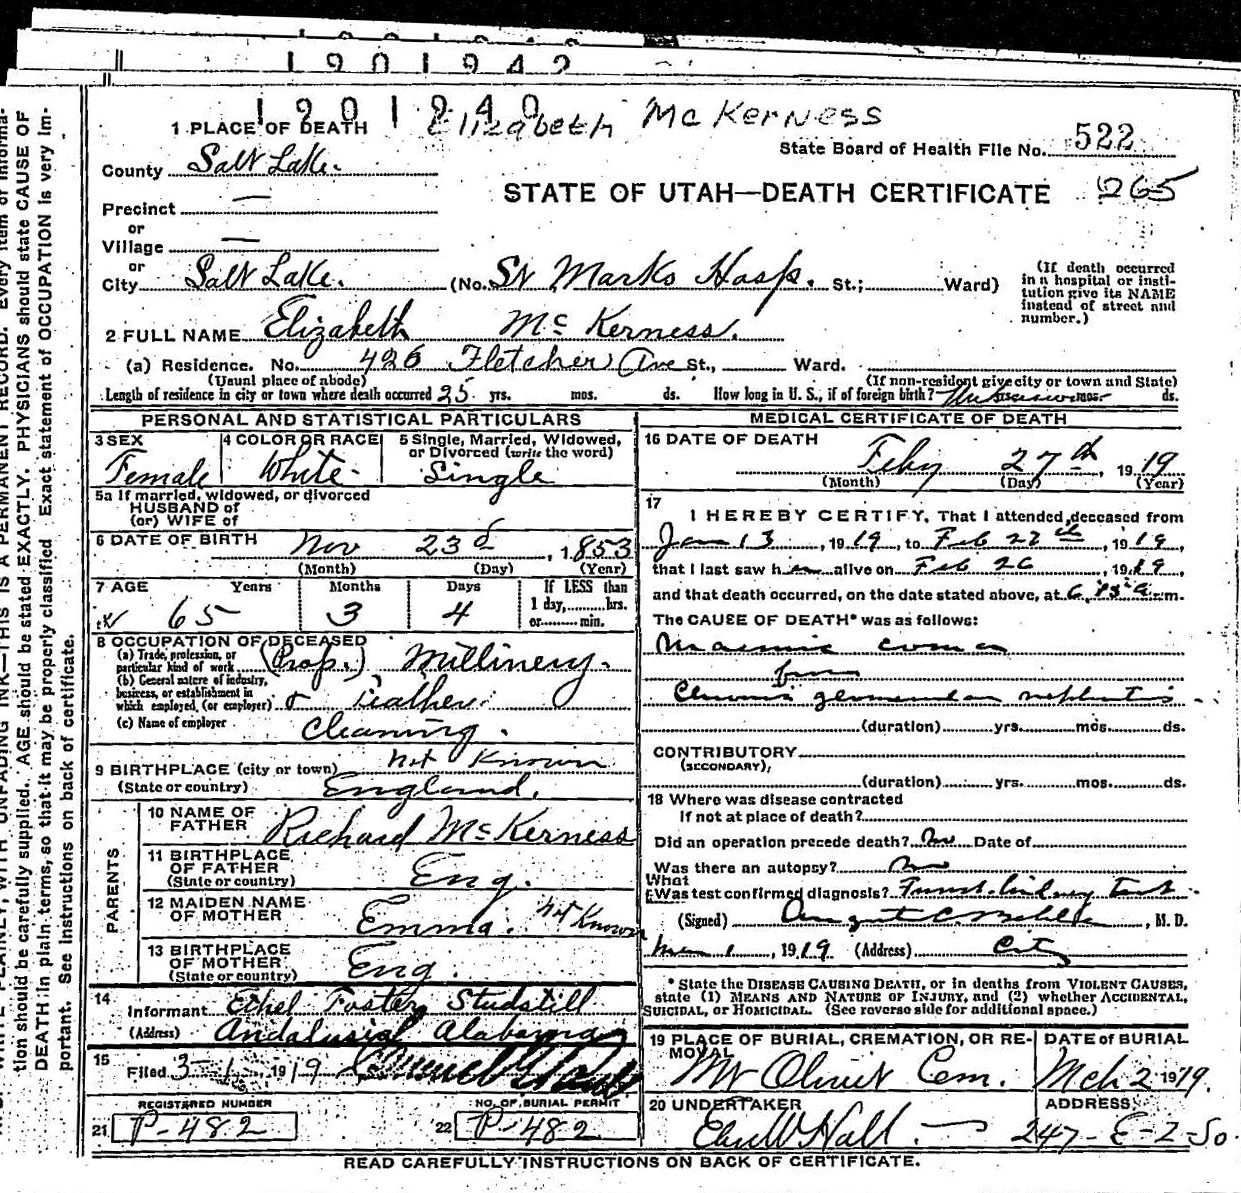 1901942
1901940
Elizabeth McKerness
1 PLACE OF DEATH
State Board of Health File No. 522
County Salt Lake.
STATE OF UTAH—DEATH CERTIFICATE 265
Precinct —
or
Village —
or
City Salt Lake. (No. St Marks Hosp. St.; Ward)
(If death occurred in a hospital or insti-
tution give its NAME
instead of street and
number.)
2 FULL NAME Elizabeth McKerness.
(a) Residence. No. 426 Fletcher Ave St., Ward.
(Usual place of abode) (If non-resident give city or town and State)
Length of residence in city or town where death occurred 25 yrs. mos. ds. How long in U. S., if of foreign birth? mos. ds.
PERSONAL AND STATISTICAL PARTICULARS
3 SEX Female
4 COLOR OR RACE White
5 Single, Married, Widowed,
or Divorced (write the word)
Single
5a If married, widowed, or divorced
HUSBAND of
(or) WIFE of
6 DATE OF BIRTH Nov 23d, 1853
(Month) (Day) (Year)
7 AGE Years Months Days If LESS than
65 3 4 1 day, hrs.
or min.
8 OCCUPATION OF DECEASED
(a) Trade, profession, or
particular kind of work (Prop.) Millinery.
(b) General nature of industry,
business, or establishment in
which employed, (or employer) & Feather
(c) Name of employer Cleaning.
9 BIRTHPLACE (city or town) not Known
(State or country) England.
PARENTS
10 NAME OF
FATHER Richard McKerness
11 BIRTHPLACE
OF FATHER
(State or country) Eng.
12 MAIDEN NAME
OF MOTHER Emma. not Known
13 BIRTHPLACE
OF MOTHER
(State or country) Eng.
14
Informant Ethel Foster Studstill
(Address) Andalusia Alabama
15
Filed 3-1-, 1919
REGISTERED NUMBER
21 P-482
NO. OF BURIAL PERMIT
22 P-482
MEDICAL CERTIFICATE OF DEATH
16 DATE OF DEATH
Feby 27th, 1919
(Month) (Day) (Year)
17
I HEREBY CERTIFY, That I attended deceased from
Jan 13, 1919, to Feb 27th, 1919,
that I last saw her alive on Feb 26, 1919,
and that death occurred, on the date stated above, at m.
The CAUSE OF DEATH* was as follows:
coma
from
Chronic glomerular nephritis
(duration) yrs. mos. ds.
CONTRIBUTORY
(SECONDARY)
(duration) yrs. mos. ds.
18 Where was disease contracted
If not at place of death?
Did an operation precede death? No Date of
Was there an autopsy? No
What
Was test confirmed diagnosis? Funct. kidney test
(Signed) , M. D.
Mar 1, 1919 (Address) City
* State the DISEASE CAUSING DEATH, or in deaths from VIOLENT CAUSES,
state (1) MEANS AND NATURE OF INJURY, and (2) whether ACCIDENTAL,
SUICIDAL, or HOMICIDAL. (See reverse side for additional space.)
19 PLACE OF BURIAL, CREMATION, OR RE-
MOVAL
Mt Olivet Cem.
DATE of BURIAL
Mch 2 1919.
20 UNDERTAKER
Hall.
ADDRESS
247-E-2-So.
READ CAREFULLY INSTRUCTIONS ON BACK OF CERTIFICATE.
tion should be carefully supplied. AGE should be stated EXACTLY. PHYSICIANS should state CAUSE OF
DEATH in plain terms, so that it may be properly classified. Exact statement of OCCUPATION is very im-
portant. See instructions on back of certificate.